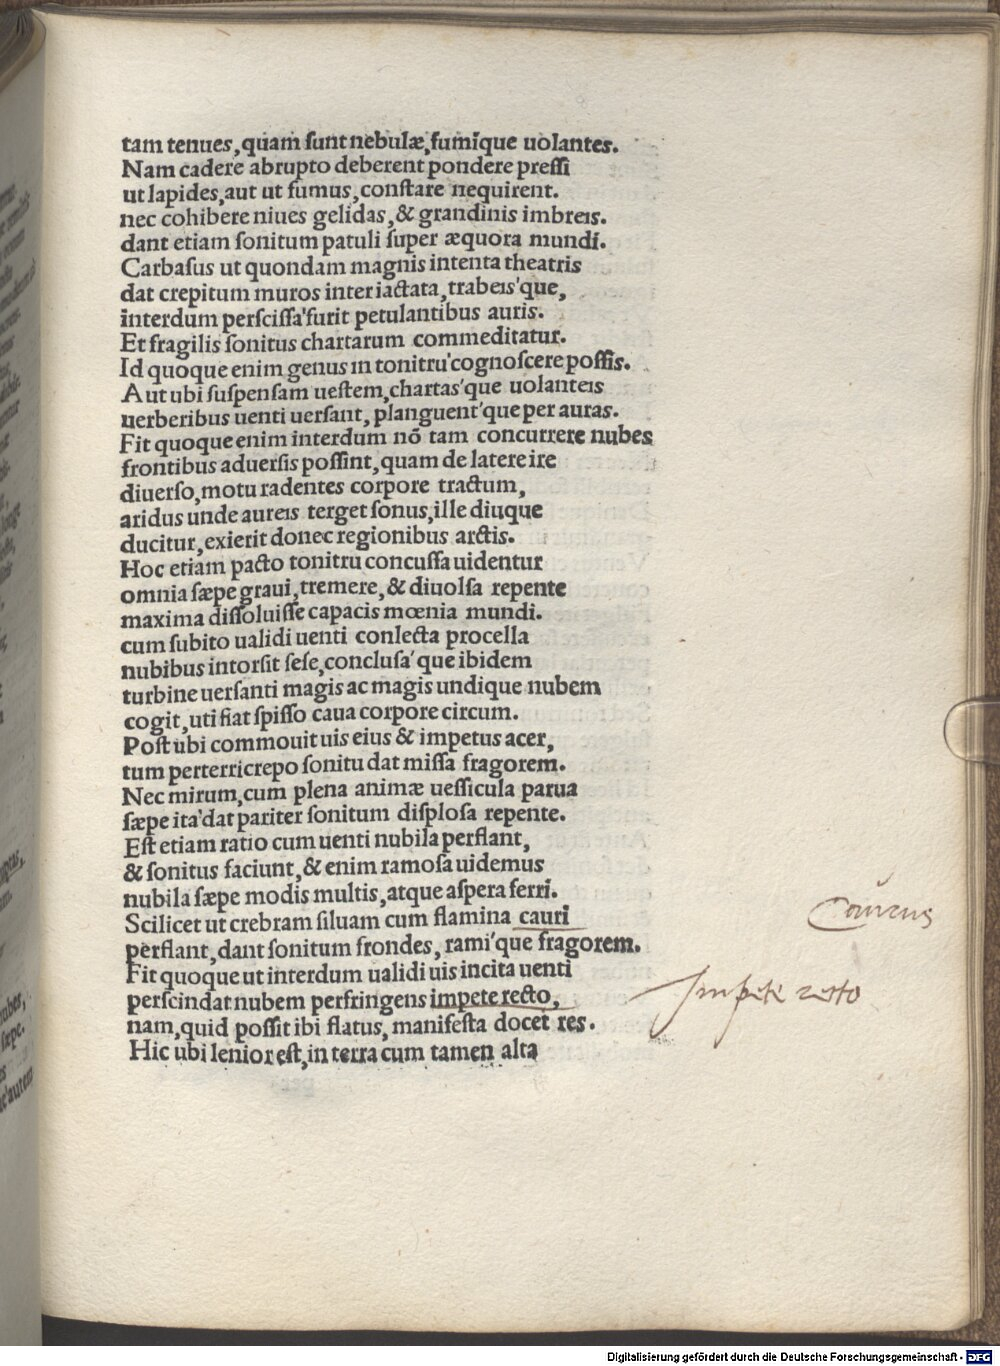 tam tenues, quam sunt nebulæ, fumi'que uolantes.
Nam cadere abrupto deberent pondere pressi
ut lapides, aut ut fumus, constare nequirent.
nec cohibere niues gelidas, & grandinis imbreis.
dant etiam sonitum patuli super æquora mundi.
Carbasus ut quondam magnis intenta theatris
dat crepitum muros inter iactata, trabeis'que,
interdum perscissa'furit petulantibus auris.
Et fragilis sonitus chartarum commeditatur.
Id quoque enim genus in tonitru'cognoscere possis.
Aut ubi suspensam uestem, chartas'que uolanteis
uerberibus uenti uersant, planguent'que per auras.
Fit quoque enim interdum nō tam concurrere nubes
frontibus aduersis possint, quam de latere ire
diuerso, motu radentes corpore tractum,
aridus unde aureis terget sonus, ille diuque
ducitur, exierit donec regionibus arctis.
Hoc etiam pacto tonitru concussa uidentur
omnia sæpe graui, tremere, & diuolsa repente
maxima dissoluisse capacis mœnia mundi.
cum subito ualidi uenti conlecta procella
nubibus intorsit sese, conclusa'que ibidem
turbine uersanti magis ac magis undique nubem
cogit, uti fiat spisso caua corpore circum.
Post ubi commouit uis eius & impetus acer,
tum perterricrepo sonitu dat missa fragorem.
Nec mirum, cum plena animæ uessicula parua
sæpe ita'dat pariter sonitum displosa repente.
Est etiam ratio cum uenti nubila perflant,
& sonitus faciunt, & enim ramosa uidemus
nubila sæpe modis multis, atque aspera ferri.
Scilicet ut crebram siluam cum flamina cauri
perflant, dant sonitum frondes, rami'que fragorem.
Caurus
Fit quoque ut interdum ualidi uis incita uenti
perscindat nubem perfringens impete recto,
Impete recto
nam, quid possit ibi flatus, manifesta docet res.
Hic ubi lenior est, in terra cum tamen alta
Digitalisierung gefördert durch die Deutsche Forschungsgemeinschaft - DFG